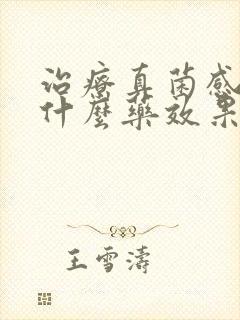 治療真菌感
什麼藥效果
王雪濤